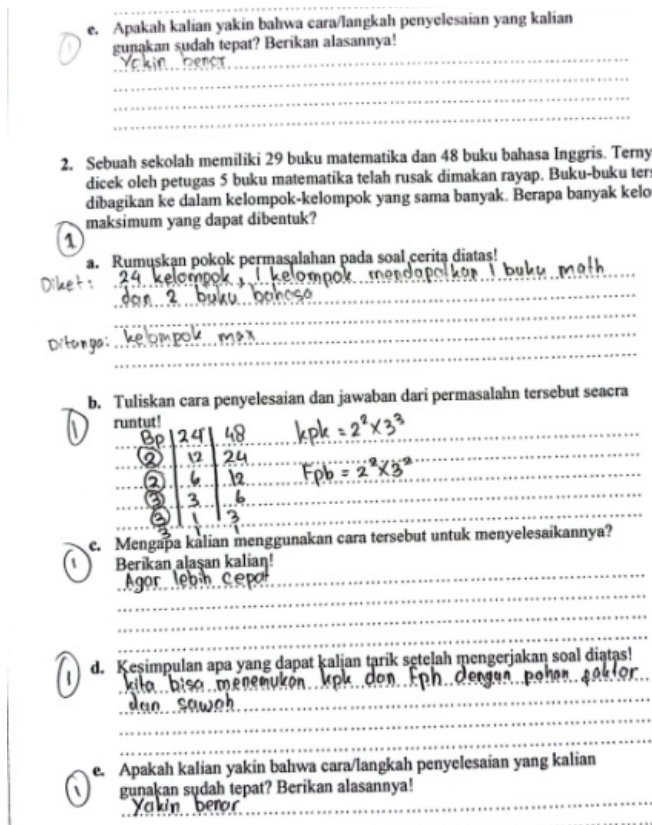 e. Apakah kalian yakin bahwa cara/langkah penyelesaian yang kalian
① gunakan sudah tepat? Berikan alasannya!
Yakin benar
2. Sebuah sekolah memiliki 29 buku matematika dan 48 buku bahasa Inggris. Terny
dicek oleh petugas 5 buku matematika telah rusak dimakan rayap. Buku-buku ters
dibagikan ke dalam kelompok-kelompok yang sama banyak. Berapa banyak kelo
maksimum yang dapat dibentuk?
①
a. Rumuskan pokok permasalahan pada soal cerita diatas!
Diket: 24 kelompok, 1 kelompok mendapatkan 1 buku math
dan 2 buku bahasa
Ditanya: kelompok max
b. Tuliskan cara penyelesaian dan jawaban dari permasalahn tersebut seacra
① runtut!
Bp | 24 | 48 kpk = 2² x 3³
② 12 24
② 6 12 Fpb = 2² x 3²
③ 3 6
③ 1 3
3 1
c. Mengapa kalian menggunakan cara tersebut untuk menyelesaikannya?
① Berikan alasan kalian!
Agar lebih cepat
d. Kesimpulan apa yang dapat kalian tarik setelah mengerjakan soal diatas!
① kita bisa menemukan kpk dan Fpb dengan pohon faktor
dan sawah
e. Apakah kalian yakin bahwa cara/langkah penyelesaian yang kalian
① gunakan sudah tepat? Berikan alasannya!
Yakin benar